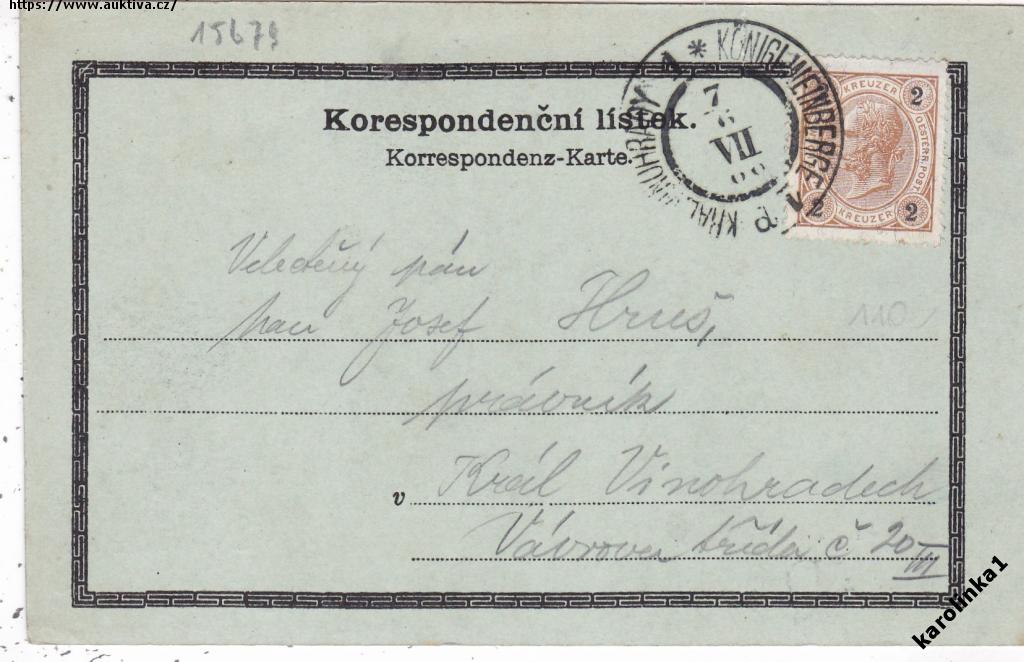 https://www.auktiva.cz/
15679
Korespondenční lístek.
Korrespondenz-Karte.
KÖNIGL. WEINBERGE 1
KRÁL. VINOHRADY 1
7
VII
KREUZER
2
OESTERR. POST.
2 KREUZER 2
Velectěný pán
pan Josef Hruš,
110
právník
v Král Vinohradech
Vávrova třída č 20/III
karolinka1